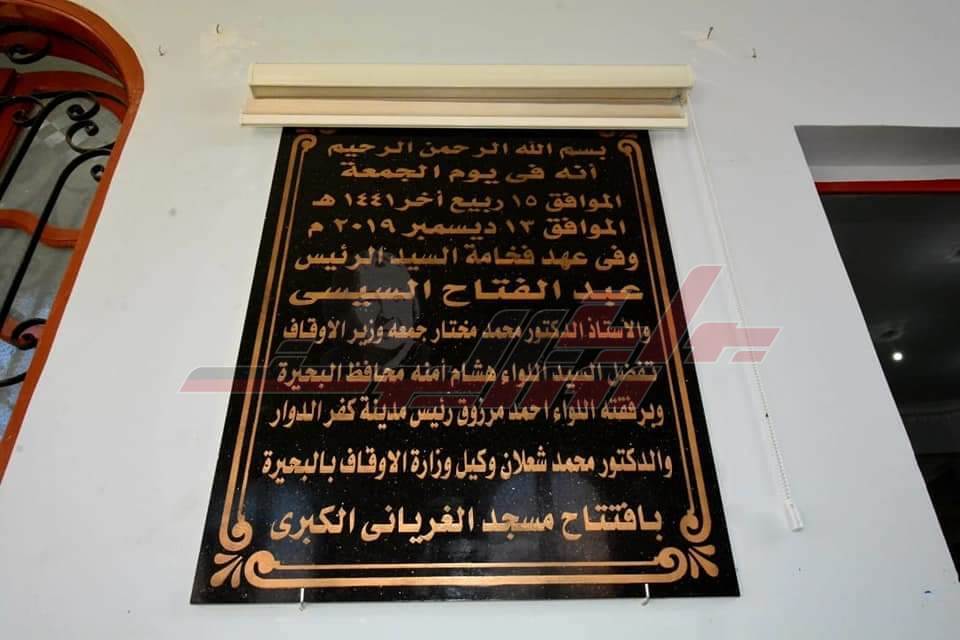 بسم الله الرحمن الرحيم
أنه فى يوم الجمعة
الموافق ١٥ ربيع أخر ١٤٤١ هـ
الموافق ١٣ ديسمبر ٢٠١٩ م
وفى عهد فخامة السيد الرئيس
عبد الفتاح السيسى
والاستاذ الدكتور محمد مختار جمعه وزير الاوقاف
تفضل السيد اللواء هشام أمنه محافظ البحيرة
وبرفقته اللواء أحمد مرزوق رئيس مدينة كفر الدوار
والدكتور محمد شعلان وكيل وزارة الاوقاف بالبحيرة
بافتتاح مسجد الغريانى الكبرى